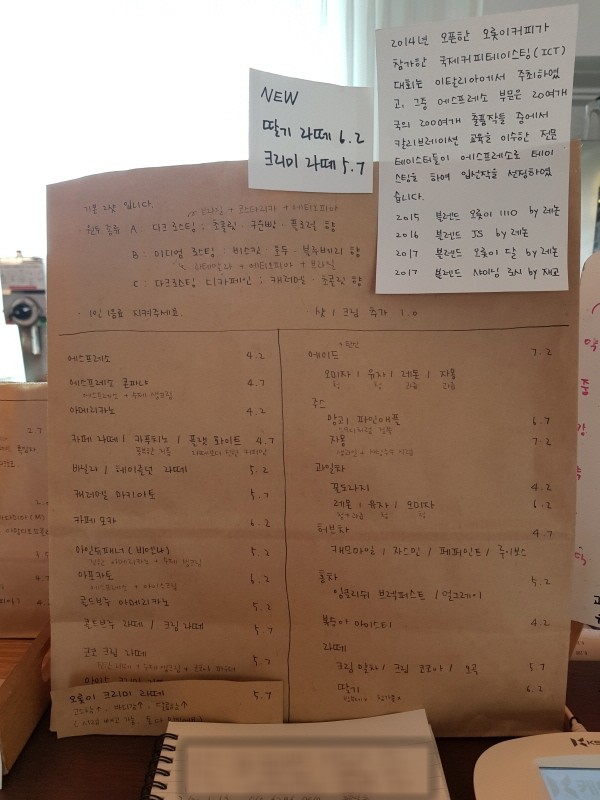 2014년 오픈한 오롯이커피가
참가한 국제커피테이스팅(ICT)
대회는 이탈리아에서 주최하였
고, 그중 에스프레소 부문은 20여개
국의 200여개 출품작들 중에서
칼리브레이션 교육을 이수한 전문
테이스터들이 에스프레소로 테이
스팅을 하여 입선작을 선정하였
습니다.
2015 블렌드 오롯이 1110 by 레논
2016 블렌드 JS by 레논
2017 블렌드 오롯이 달 by 레논
2017 블렌드 샤이닝 로시 by 지고
NEW
딸기 라떼 6.2
크리미 라떼 5.7
기본 2샷 입니다.
원두 종류 A : 다크로스팅 : 초콜릿 · 구운빵 · 플로럴 향
B : 미디엄 로스팅 : 비스킷 · 호두 · 블루베리 향
C : 다크로스팅 디카페인 : 캐러멜 · 초콜릿 향
· 1인 1음료 지켜주세요.
· 샷 / 크림 추가 1.0
에스프레소 4.2
에스프레소 콘파냐 4.7
에스프레소 + 수제 생크림
아메리카노 4.2
카페 라떼 / 카푸치노 / 플랫 화이트 4.7
바닐라 / 헤이즐넛 라떼 5.2
캐러멜 마키아토 5.7
카페 모카 6.2
아인슈패너 (비엔나) 5.2
진한 아메리카노 + 수제 생크림
아포가토 6.2
에스프레소 + 아이스크림
콜드브루 아메리카노 5.2
콜드브루 라떼 / 크림 라떼 5.7
코코 크림 라떼 5.7
오롯이 크리미 라떼 5.7
에이드 7.2
오미자 / 유자 / 레몬 / 자몽
청 청 과육 과육
주스
망고 / 파인애플 6.7
자몽 7.2
과일차
꿀도라지 4.2
레몬 / 유자 / 오미자 6.2
허브차 4.7
캐모마일 / 자스민 / 페퍼민트 / 루이보스
홍차 5.2
잉글리쉬 브렉퍼스트 / 얼그레이
복숭아 아이스티 4.2
라떼
크림 말차 / 크림 코코아 / 오곡 5.7
딸기 6.2